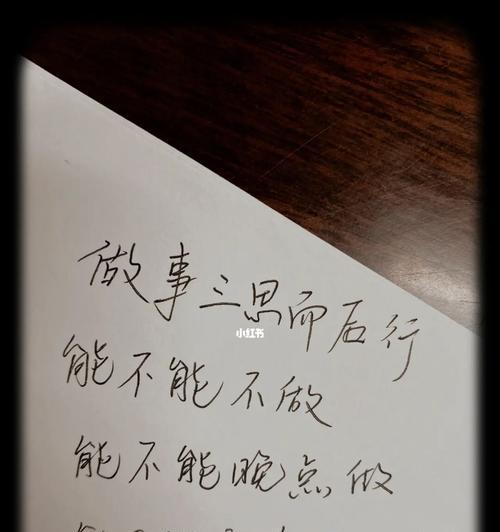 做事三思而后行
小红书
能不能不做
能不能晚点做